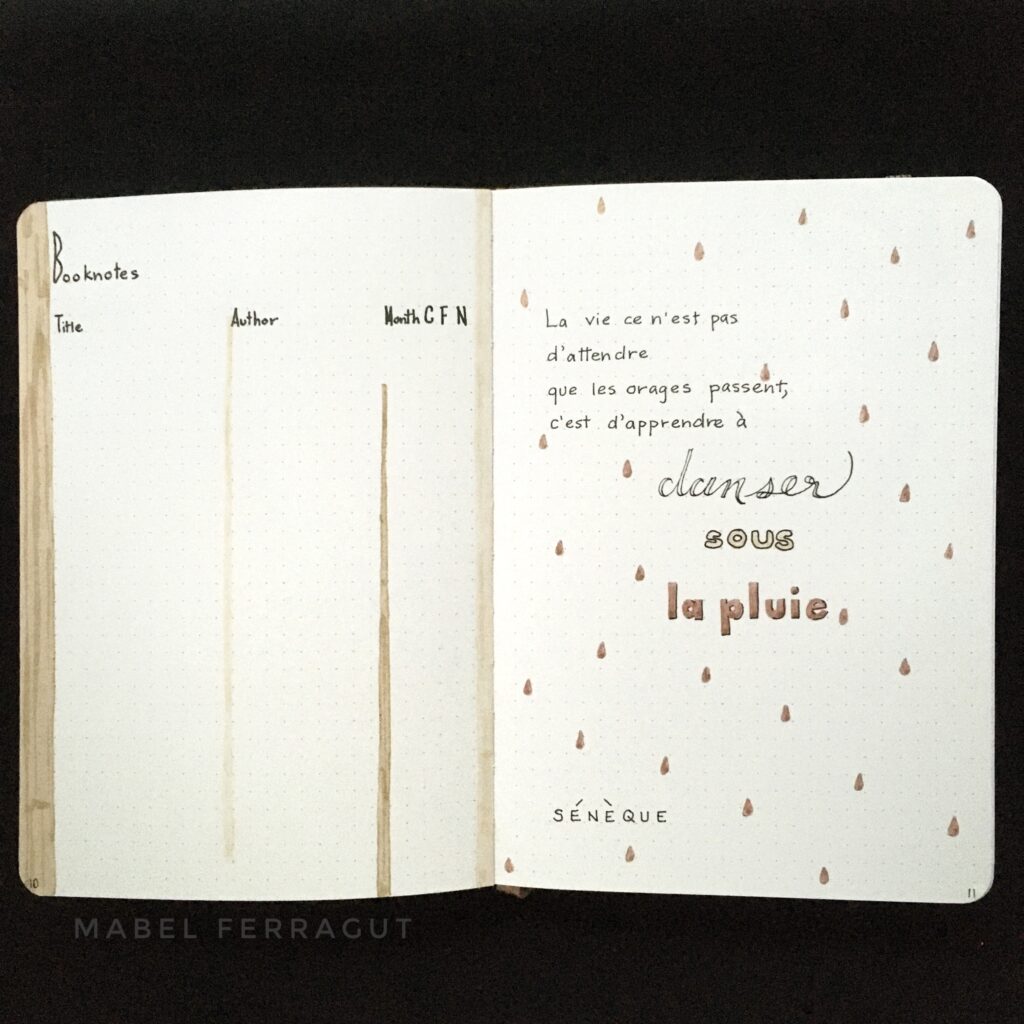 Booknotes
Title Author Month C F N
10
La vie ce n'est pas
d'attendre
que les orages passent,
c'est d'apprendre à
danser
sous
la pluie
SÉNÈQUE
11
MABEL FERRAGUT